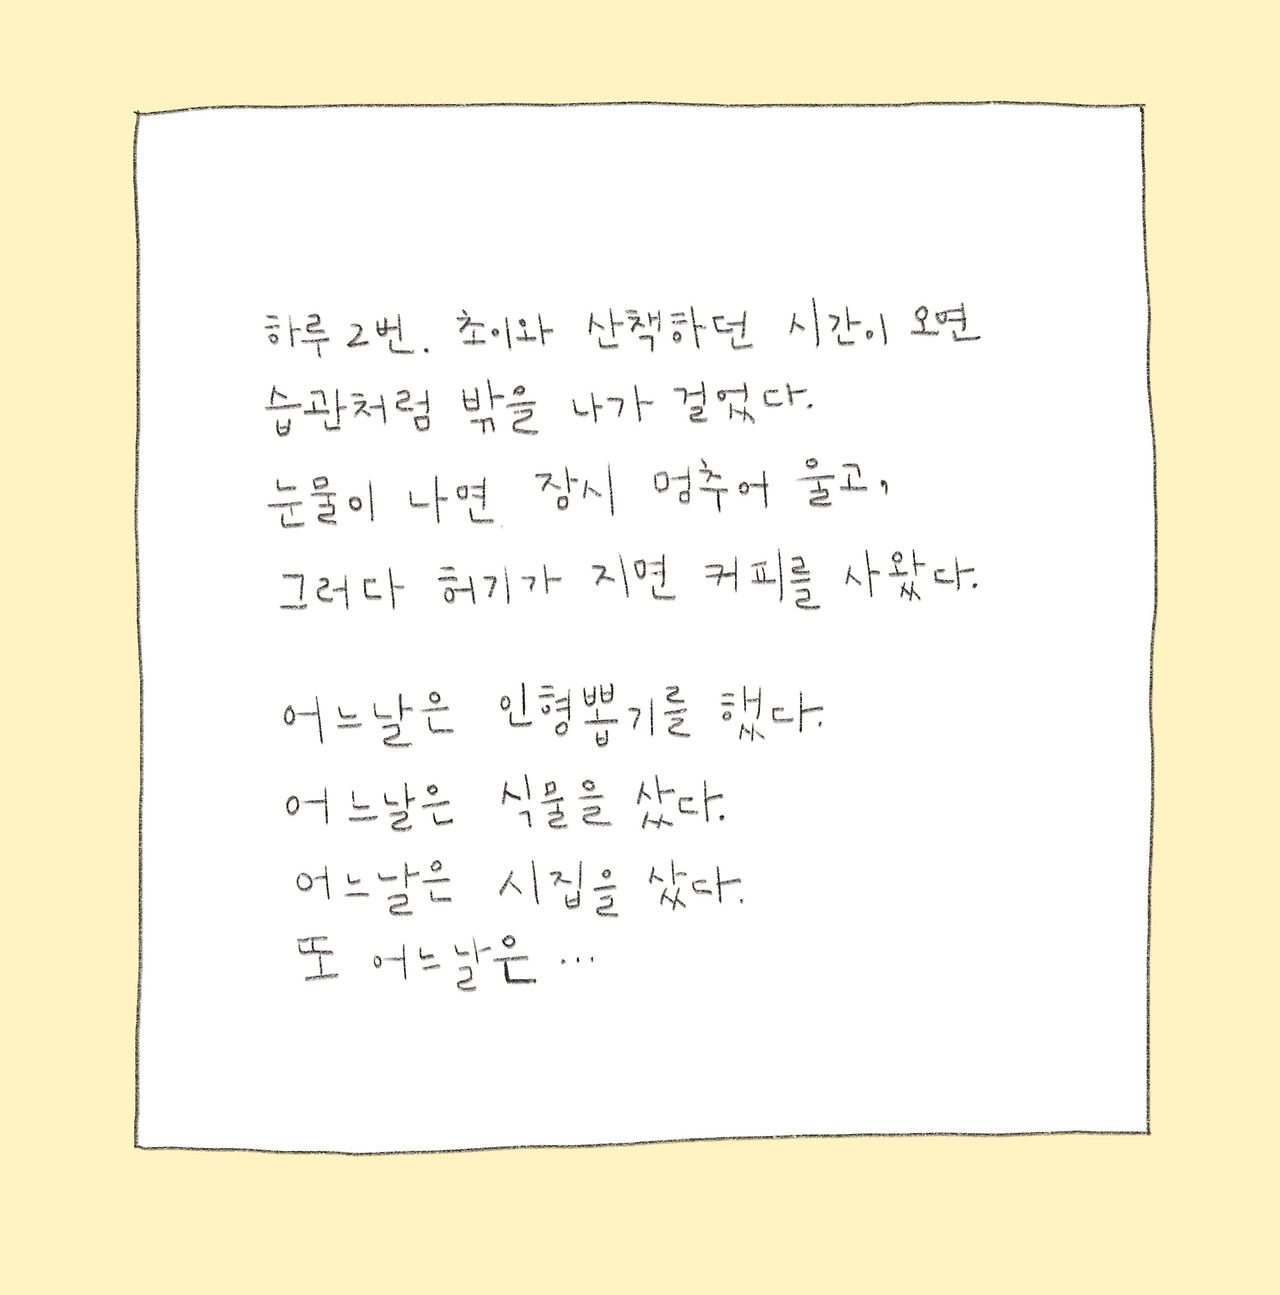 하루 2번. 초이와 산책하던 시간이 오면
습관처럼 밖을 나가 걸었다.
눈물이 나면 잠시 멈추어 울고,
그러다 허기가 지면 커피를 사왔다.
어느날은 인형뽑기를 했다.
어느날은 식물을 샀다.
어느날은 시집을 샀다.
또 어느날은 ...